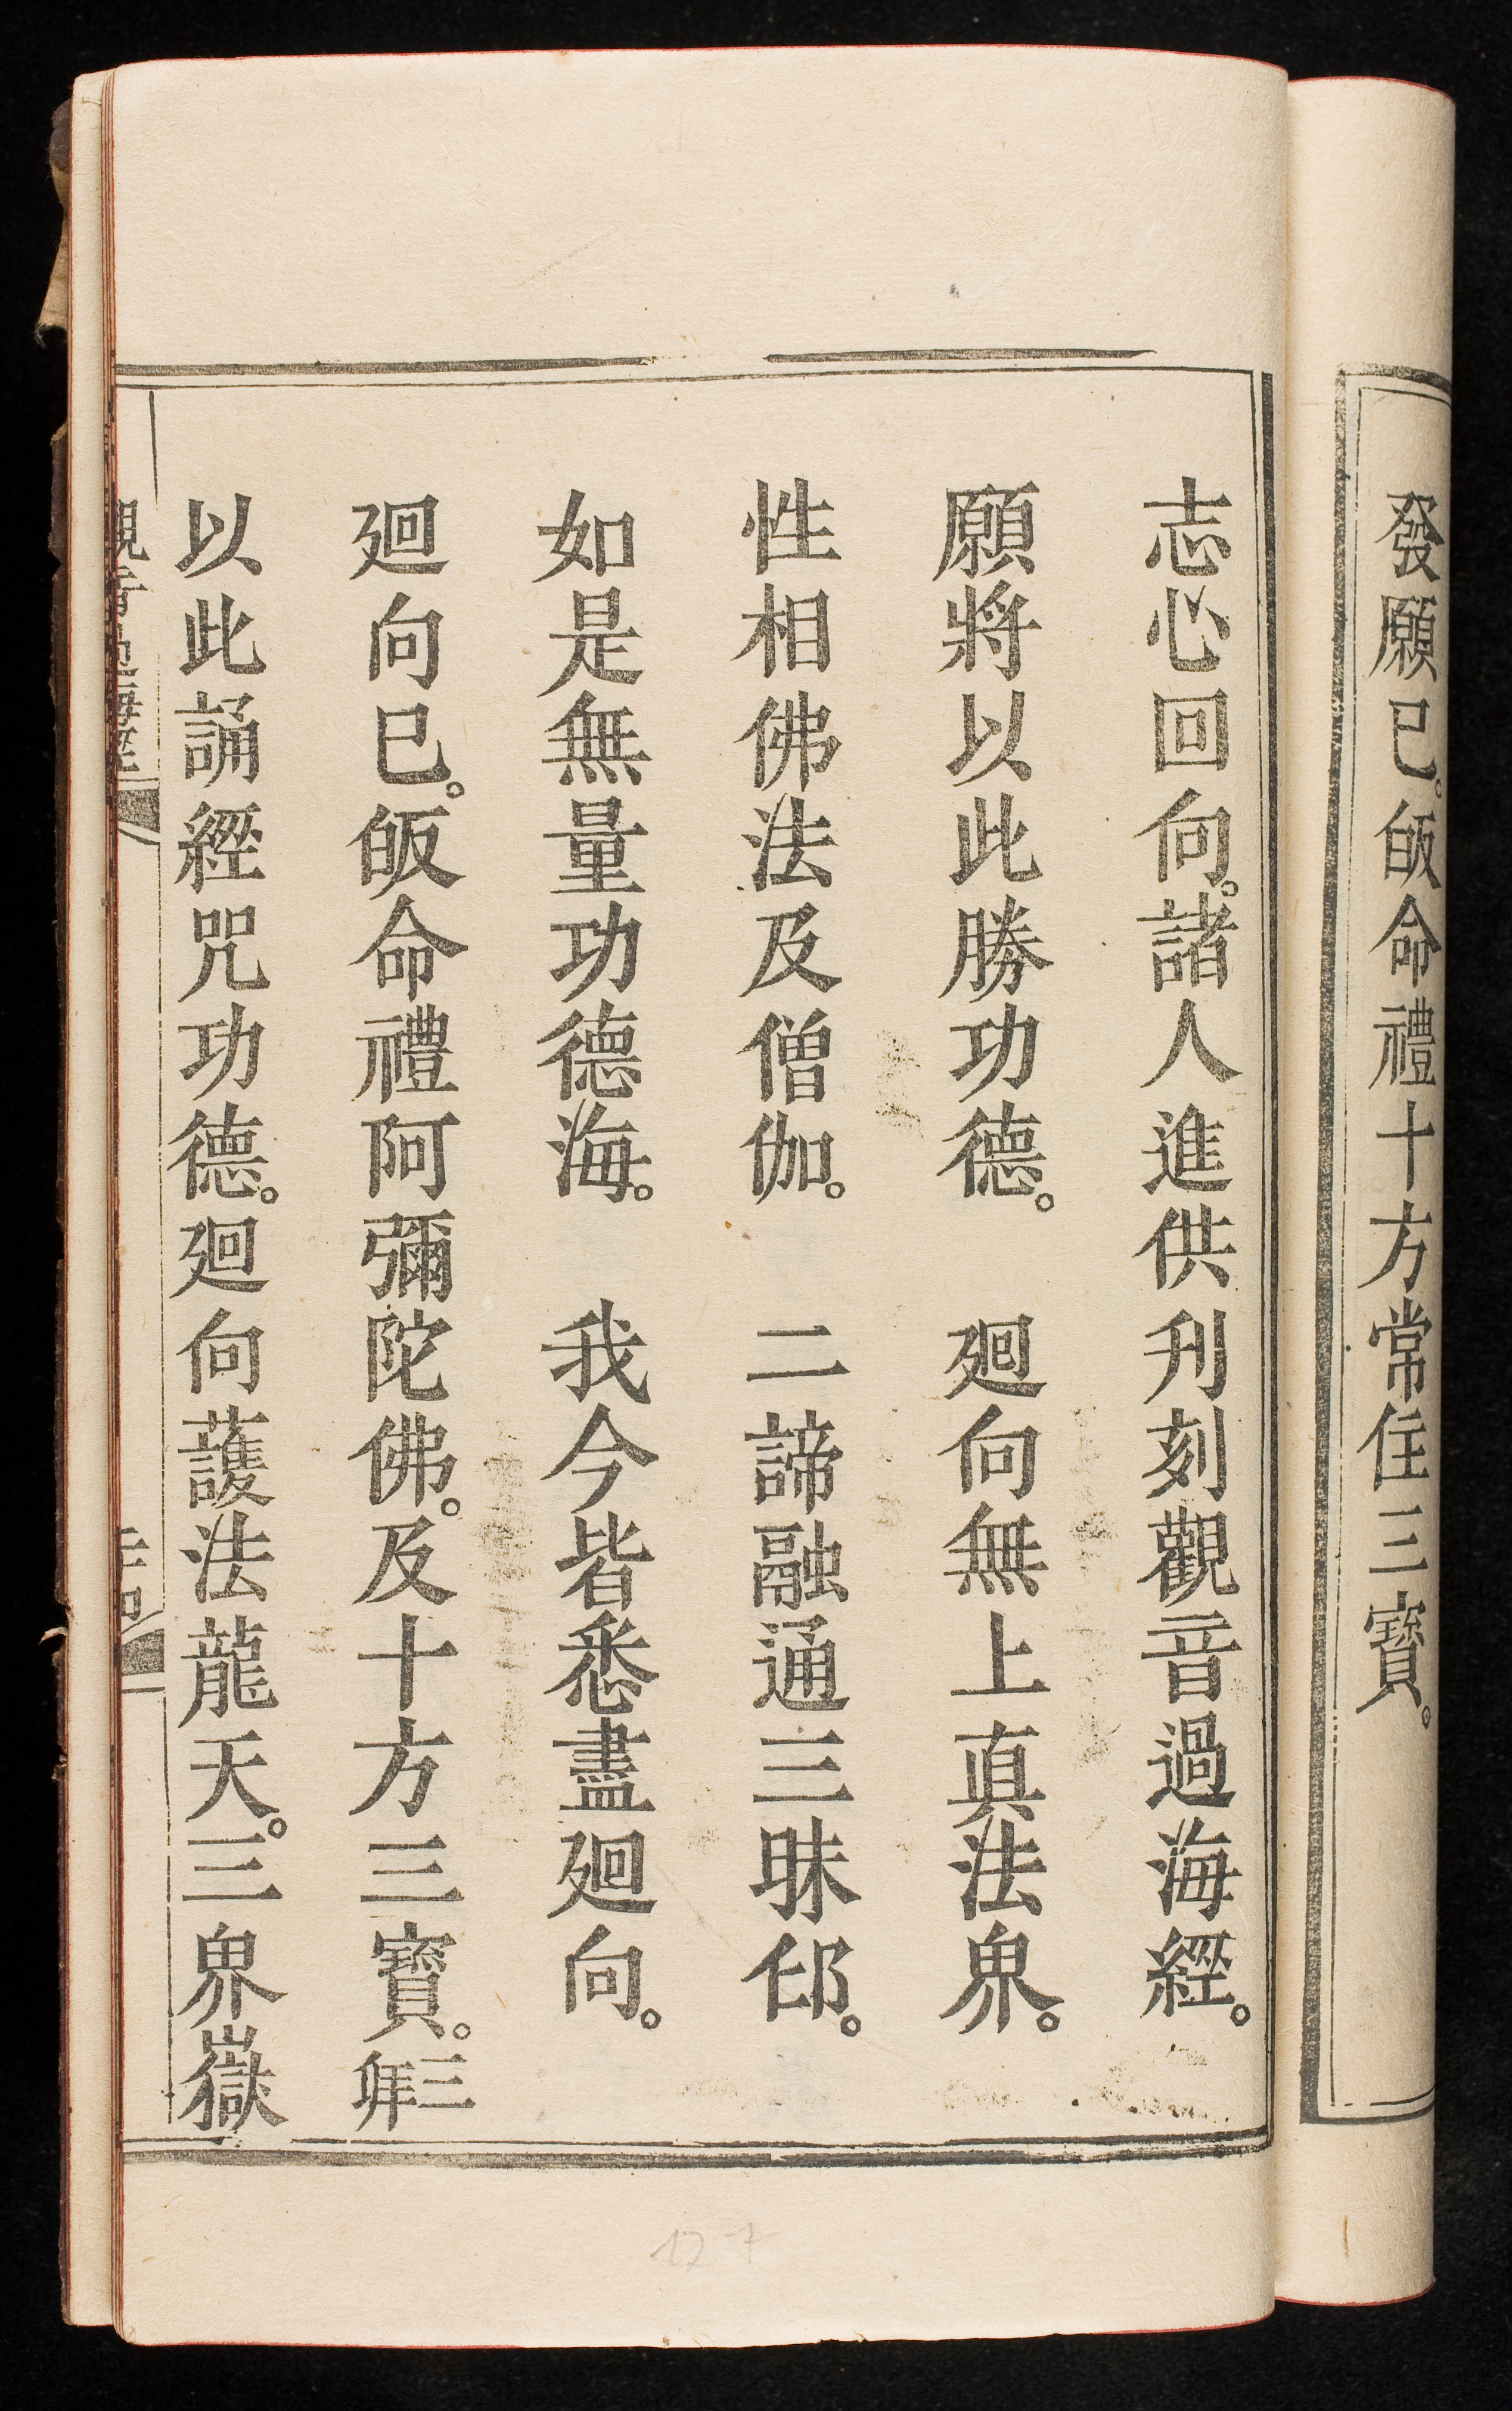 發願已。皈命禮十方常住三寶。
志心回向。諸人進供刋刻觀音過海經。
願將以此勝功德。 廻向無上真法界。
性相佛法及僧伽。 二諦融通三昧印。
如是無量功德海。 我今皆悉盡廻向。
廻向已。皈命禮阿彌陀佛。及十方三寶。三拜
以此誦經咒功德。廻向護法龍天。三界嶽
127